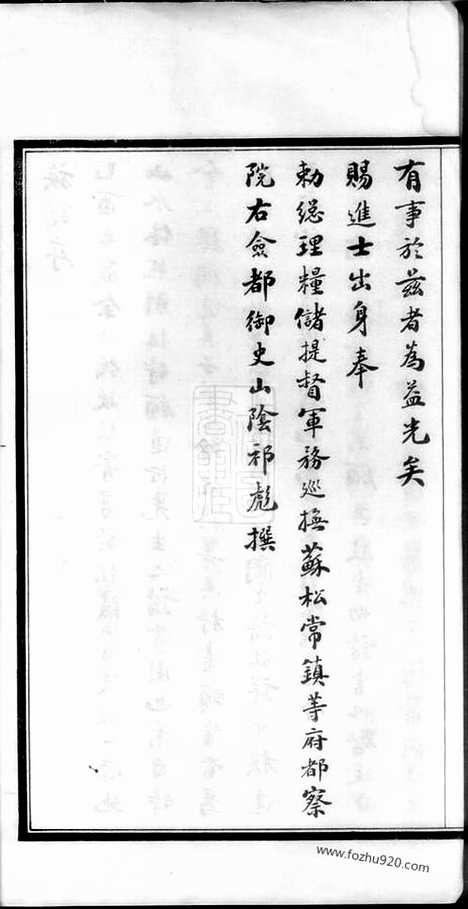 有事於茲者為益光矣
賜進士出身奉
勅總理糧儲提督軍務巡撫蘇松常鎮等府都察
院右僉都御史山陰祁彪撰
www.fozhu920.com